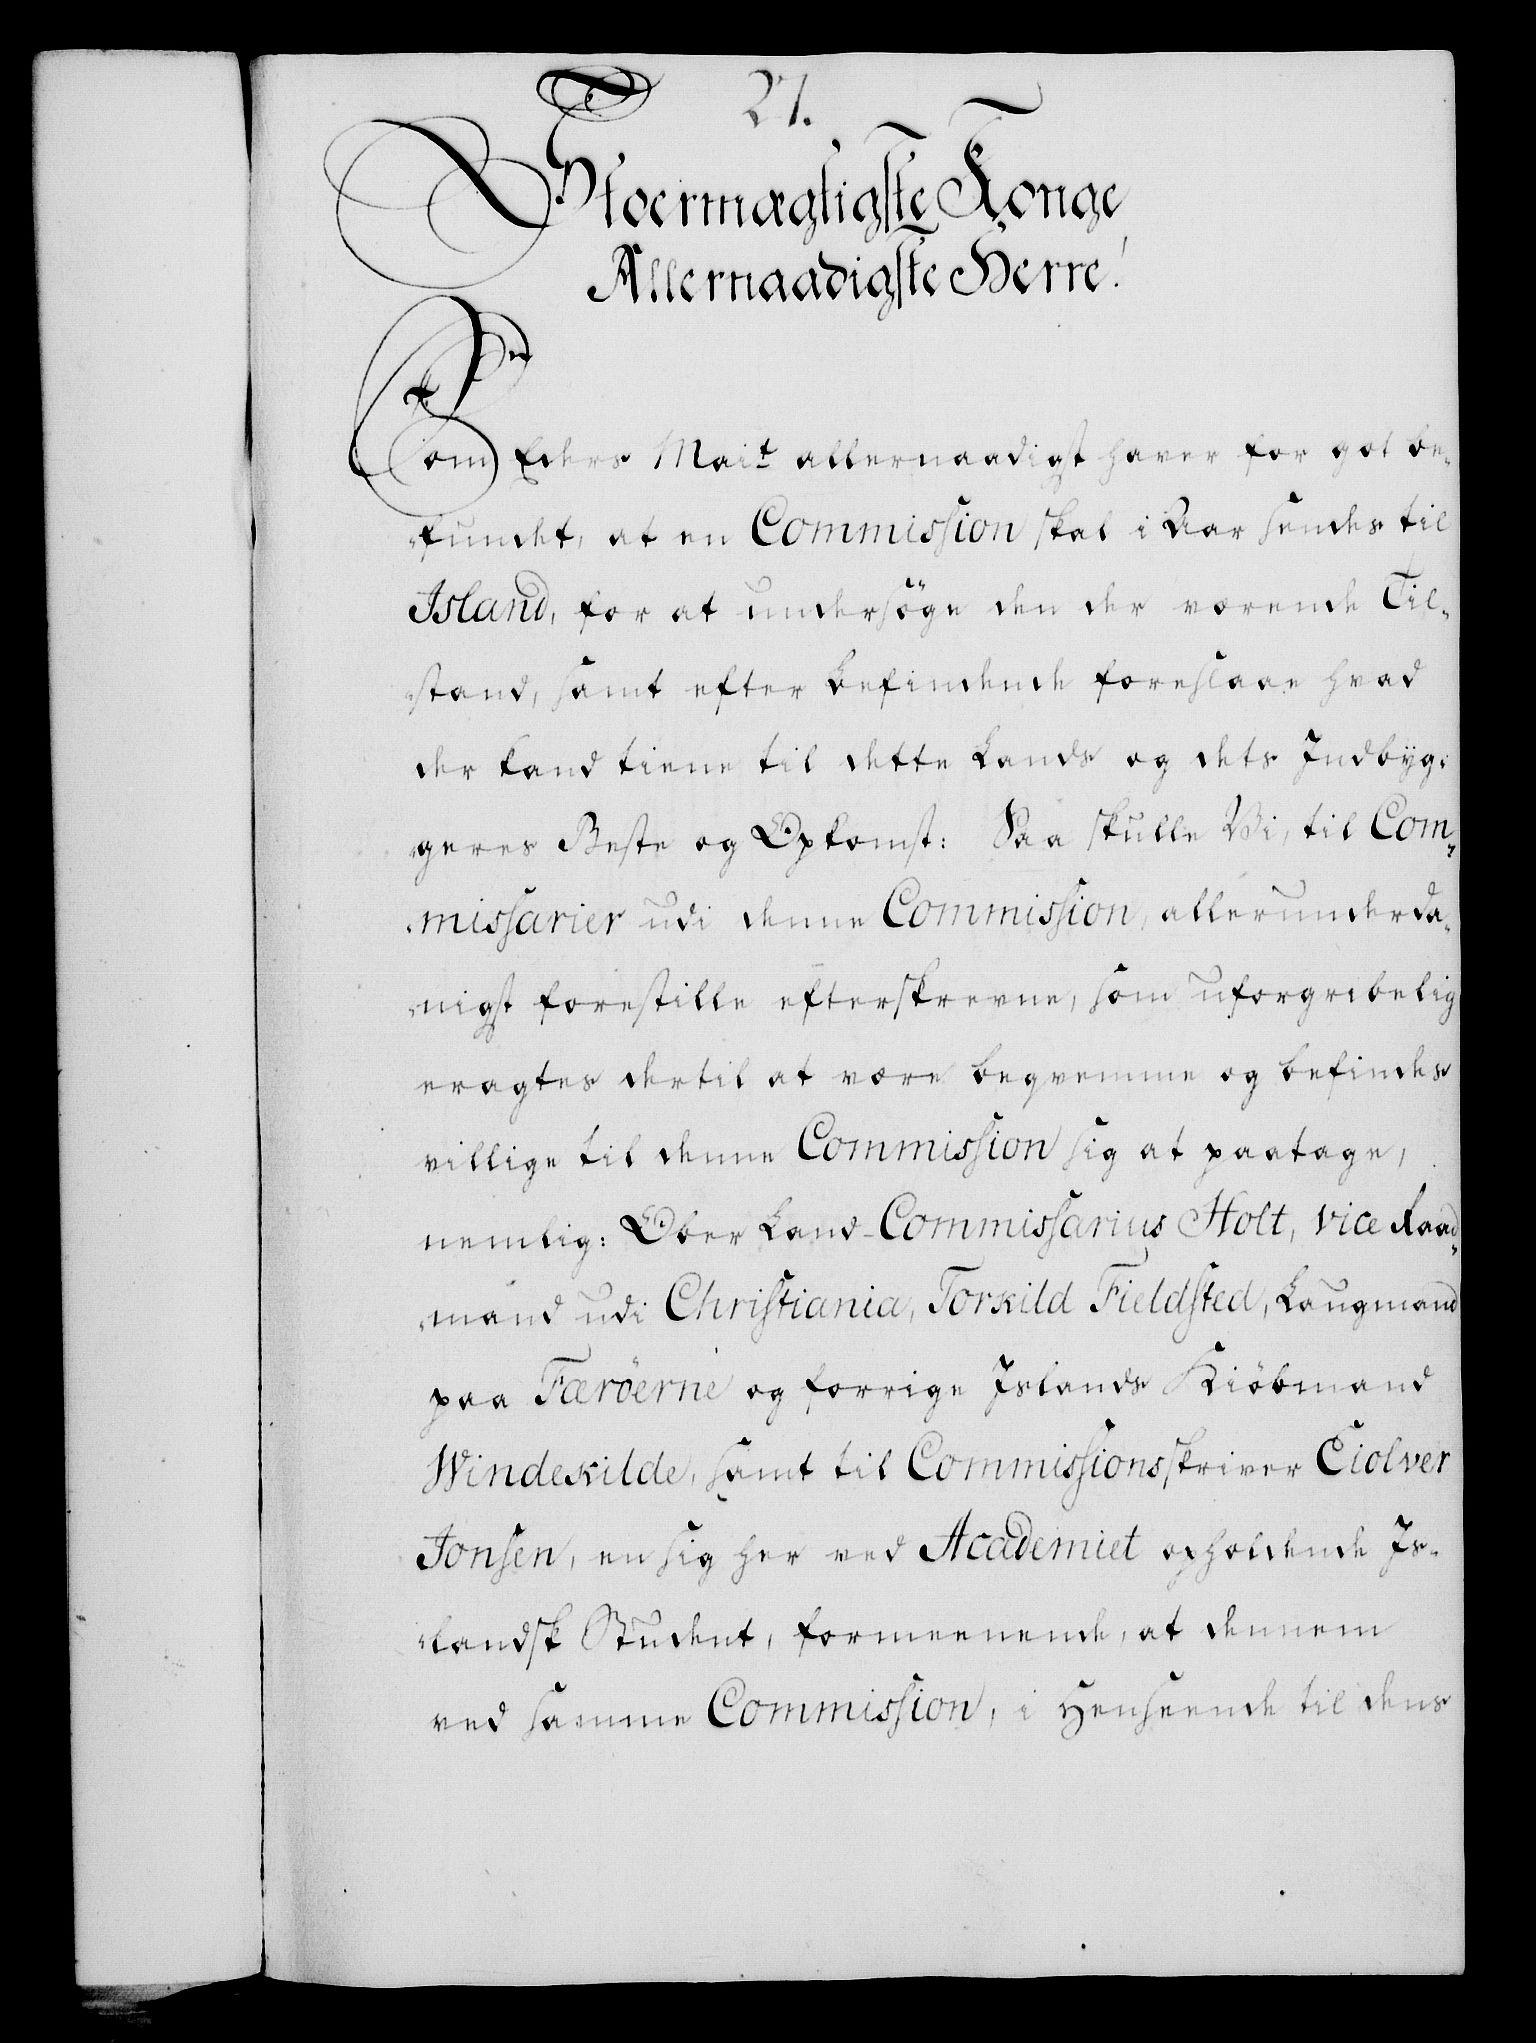 27.
Stoermægtigste Konge
Allernaadigste Herre!
Som Eders Mait allernaadigst haver for got be-
funden, at en Commission skal i Aar sendes til
Island, for at undersöge den der værende Til-
stand, samt efter befindende foreslaae hvad
der kand tiene til dette Lands og dets Indbyg-
geres Beste og Opkomst: Saa skulle Vi, til Com-
missarier udi denne Commission, allerunderda-
nigst forestille efterskrevne, som uforgribelig
eragtes dertil at være beqvemme og befindes
villige til denne Commission sig at paatage,
nemlig: Ober Land-Commissarius Holt, vice Raad-
mand udi Christiania, Torkild Fieldsted, Laugmand
paa Færöerne og forrige Islands Kiöbmand
Windekilde, samt til Commissionsskriver Eiolver
Jonsen, en sig her ved Academiet opholdende Is-
landsk Student, formeenende, at dennem
ved samme Commission, i Henseende til dens